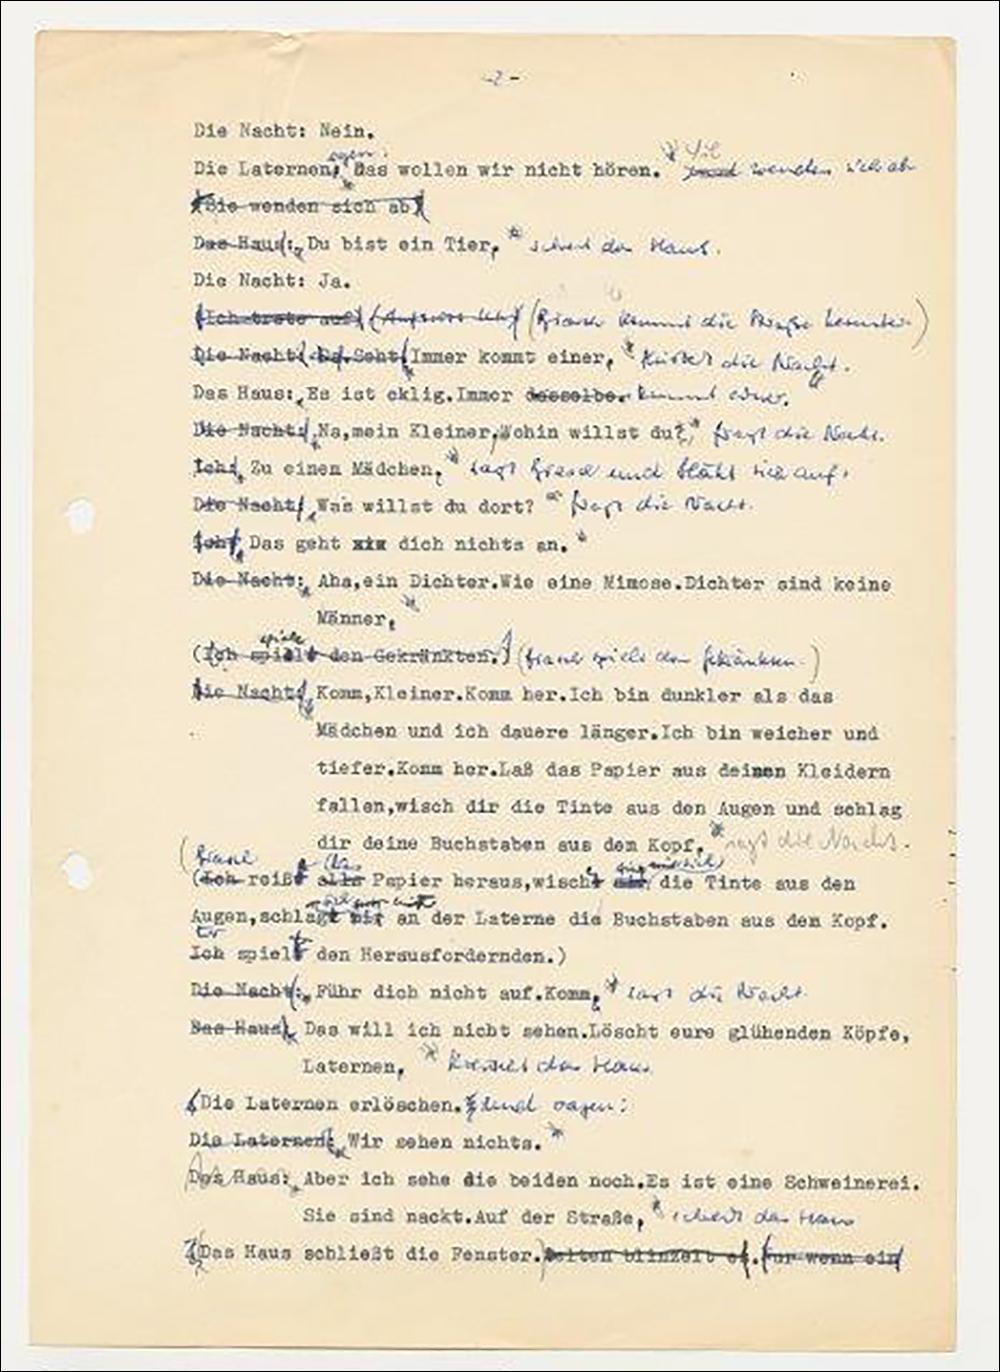 -2-
Die Nacht: Nein.
Die Laternen: sagen: Das wollen wir nicht hören. und wenden sich ab
(Sie wenden sich ab)
Das Haus: Du bist ein Tier, schreit das Haus.
Die Nacht: Ja.
(Ich trete auf) (Giese kommt die Straße herunter.)
Die Nacht: Da. Seht. Immer kommt einer, die Nacht.
Das Haus: Es ist eklig.Immer dasselbe. kommt einer.
Die Nacht: Na,mein Kleiner,Wohin willst du?, fragt die Nacht.
Ich: Zu einem Mädchen, sagt und bläht sich auf.
Die Nacht: Was willst du dort? fragt die Nacht.
Ich: Das geht xix dich nichts an.
Die Nacht: Aha,ein Dichter.Wie eine Mimose.Dichter sind keine
Männer,
(Ich spiele den Gekränkten.) ( spielt den Gekränkten.)
Die Nacht: Komm,Kleiner.Komm her.Ich bin dunkler als das
Mädchen und ich dauere länger.Ich bin weicher und
tiefer.Komm her.Laß das Papier aus deinen Kleidern
fallen,wisch dir die Tinte aus den Augen und schlag
dir deine Buchstaben aus dem Kopf, sagt die Nacht.
(Ich reißt alle das Papier heraus,wischt mir sich die Tinte aus den
Augen,schlagt mir sich an der Laterne die Buchstaben aus dem Kopf.
Ich Er spielt den Herausfordernden.)
Die Nacht: Führ dich nicht auf.Komm, sagt die Nacht
Das Haus: Das will ich nicht sehen.Löscht eure glühenden Köpfe,
Laternen, das Haus
(Die Laternen erlöschen. und sagen:
Die Laternen: Wir sehen nichts.
Das Haus: Aber ich sehe die beiden noch.Es ist eine Schweinerei.
Sie sind nackt.Auf der Straße, schreit das Haus
(Das Haus schließt die Fenster.)Selten blinzelt es.Nur wenn ein